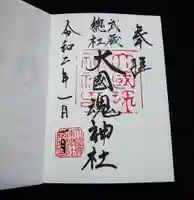 奉拝
武蔵
總社
大國魂神社
令和二年一月一日